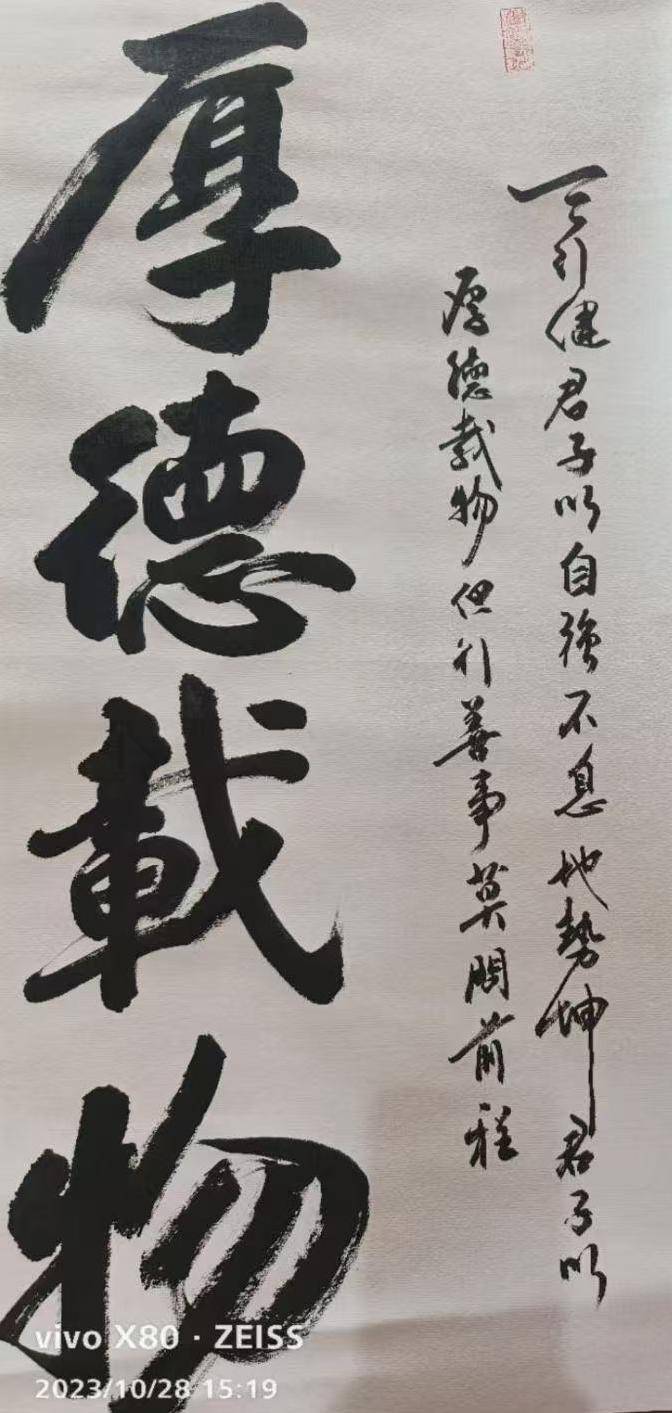 天行健君子以自強不息地勢坤君子以
厚德載物但行善事莫問前程
厚德載物
vivo X80 · ZEISS
2023/10/28 15:19